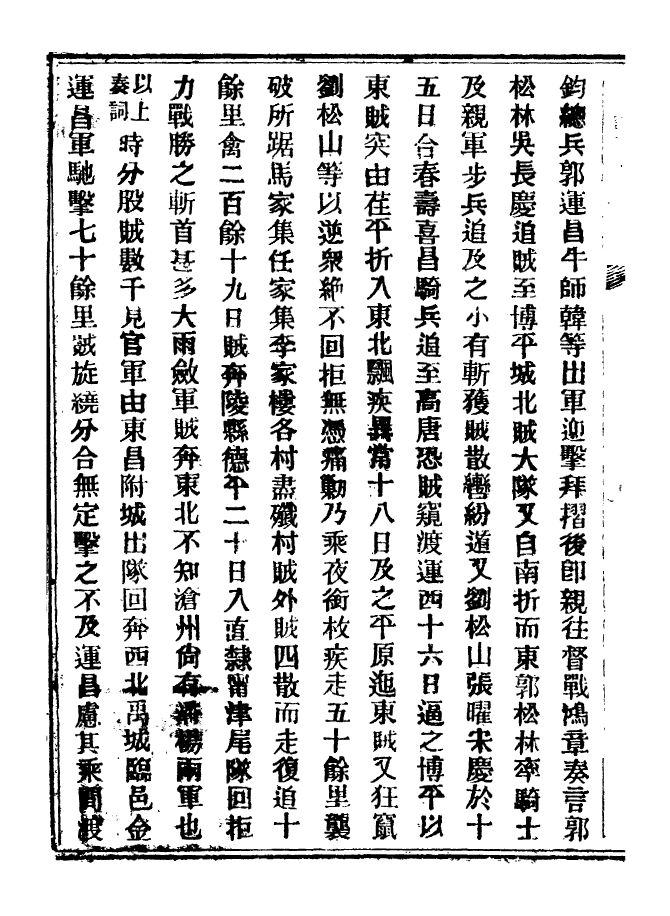 鈞總兵郭運昌牛師韓等出軍迎擊拜摺後卽親往督戰鴻章奏言郭
松林吳長慶追賊至博平城北賊大隊又自南折而東郭松林率騎士
及親軍步兵追及之小有斬獲賊散轡紛遁又劉松山張曜宋慶於十
五日合春壽喜昌騎兵追至高唐恐賊窺渡運西十六日逼之博平以
東賊突由茌平折入東北飄疾異常十八日及之平原迤東賊又狂竄
劉松山等以逆衆絶不回拒無憑痛勦乃乘夜銜枚疾走五十餘里襲
破所踞馬家集任家集李家樓各村盡殲村賊外賊四散而走復追十
餘里禽二百餘十九日賊奔陵縣德平二十日入直隸甯津尾隊回拒
力戰勝之斬首甚多大雨斂軍賊奔東北不知滄州尙有潘楊兩軍也
以上奏詞時分股賊數千見官軍由東昌附城出隊回奔西北禹城臨邑金
運昌軍馳擊七十餘里賊旋繞分合無定擊之不及運昌慮其乘閒渡